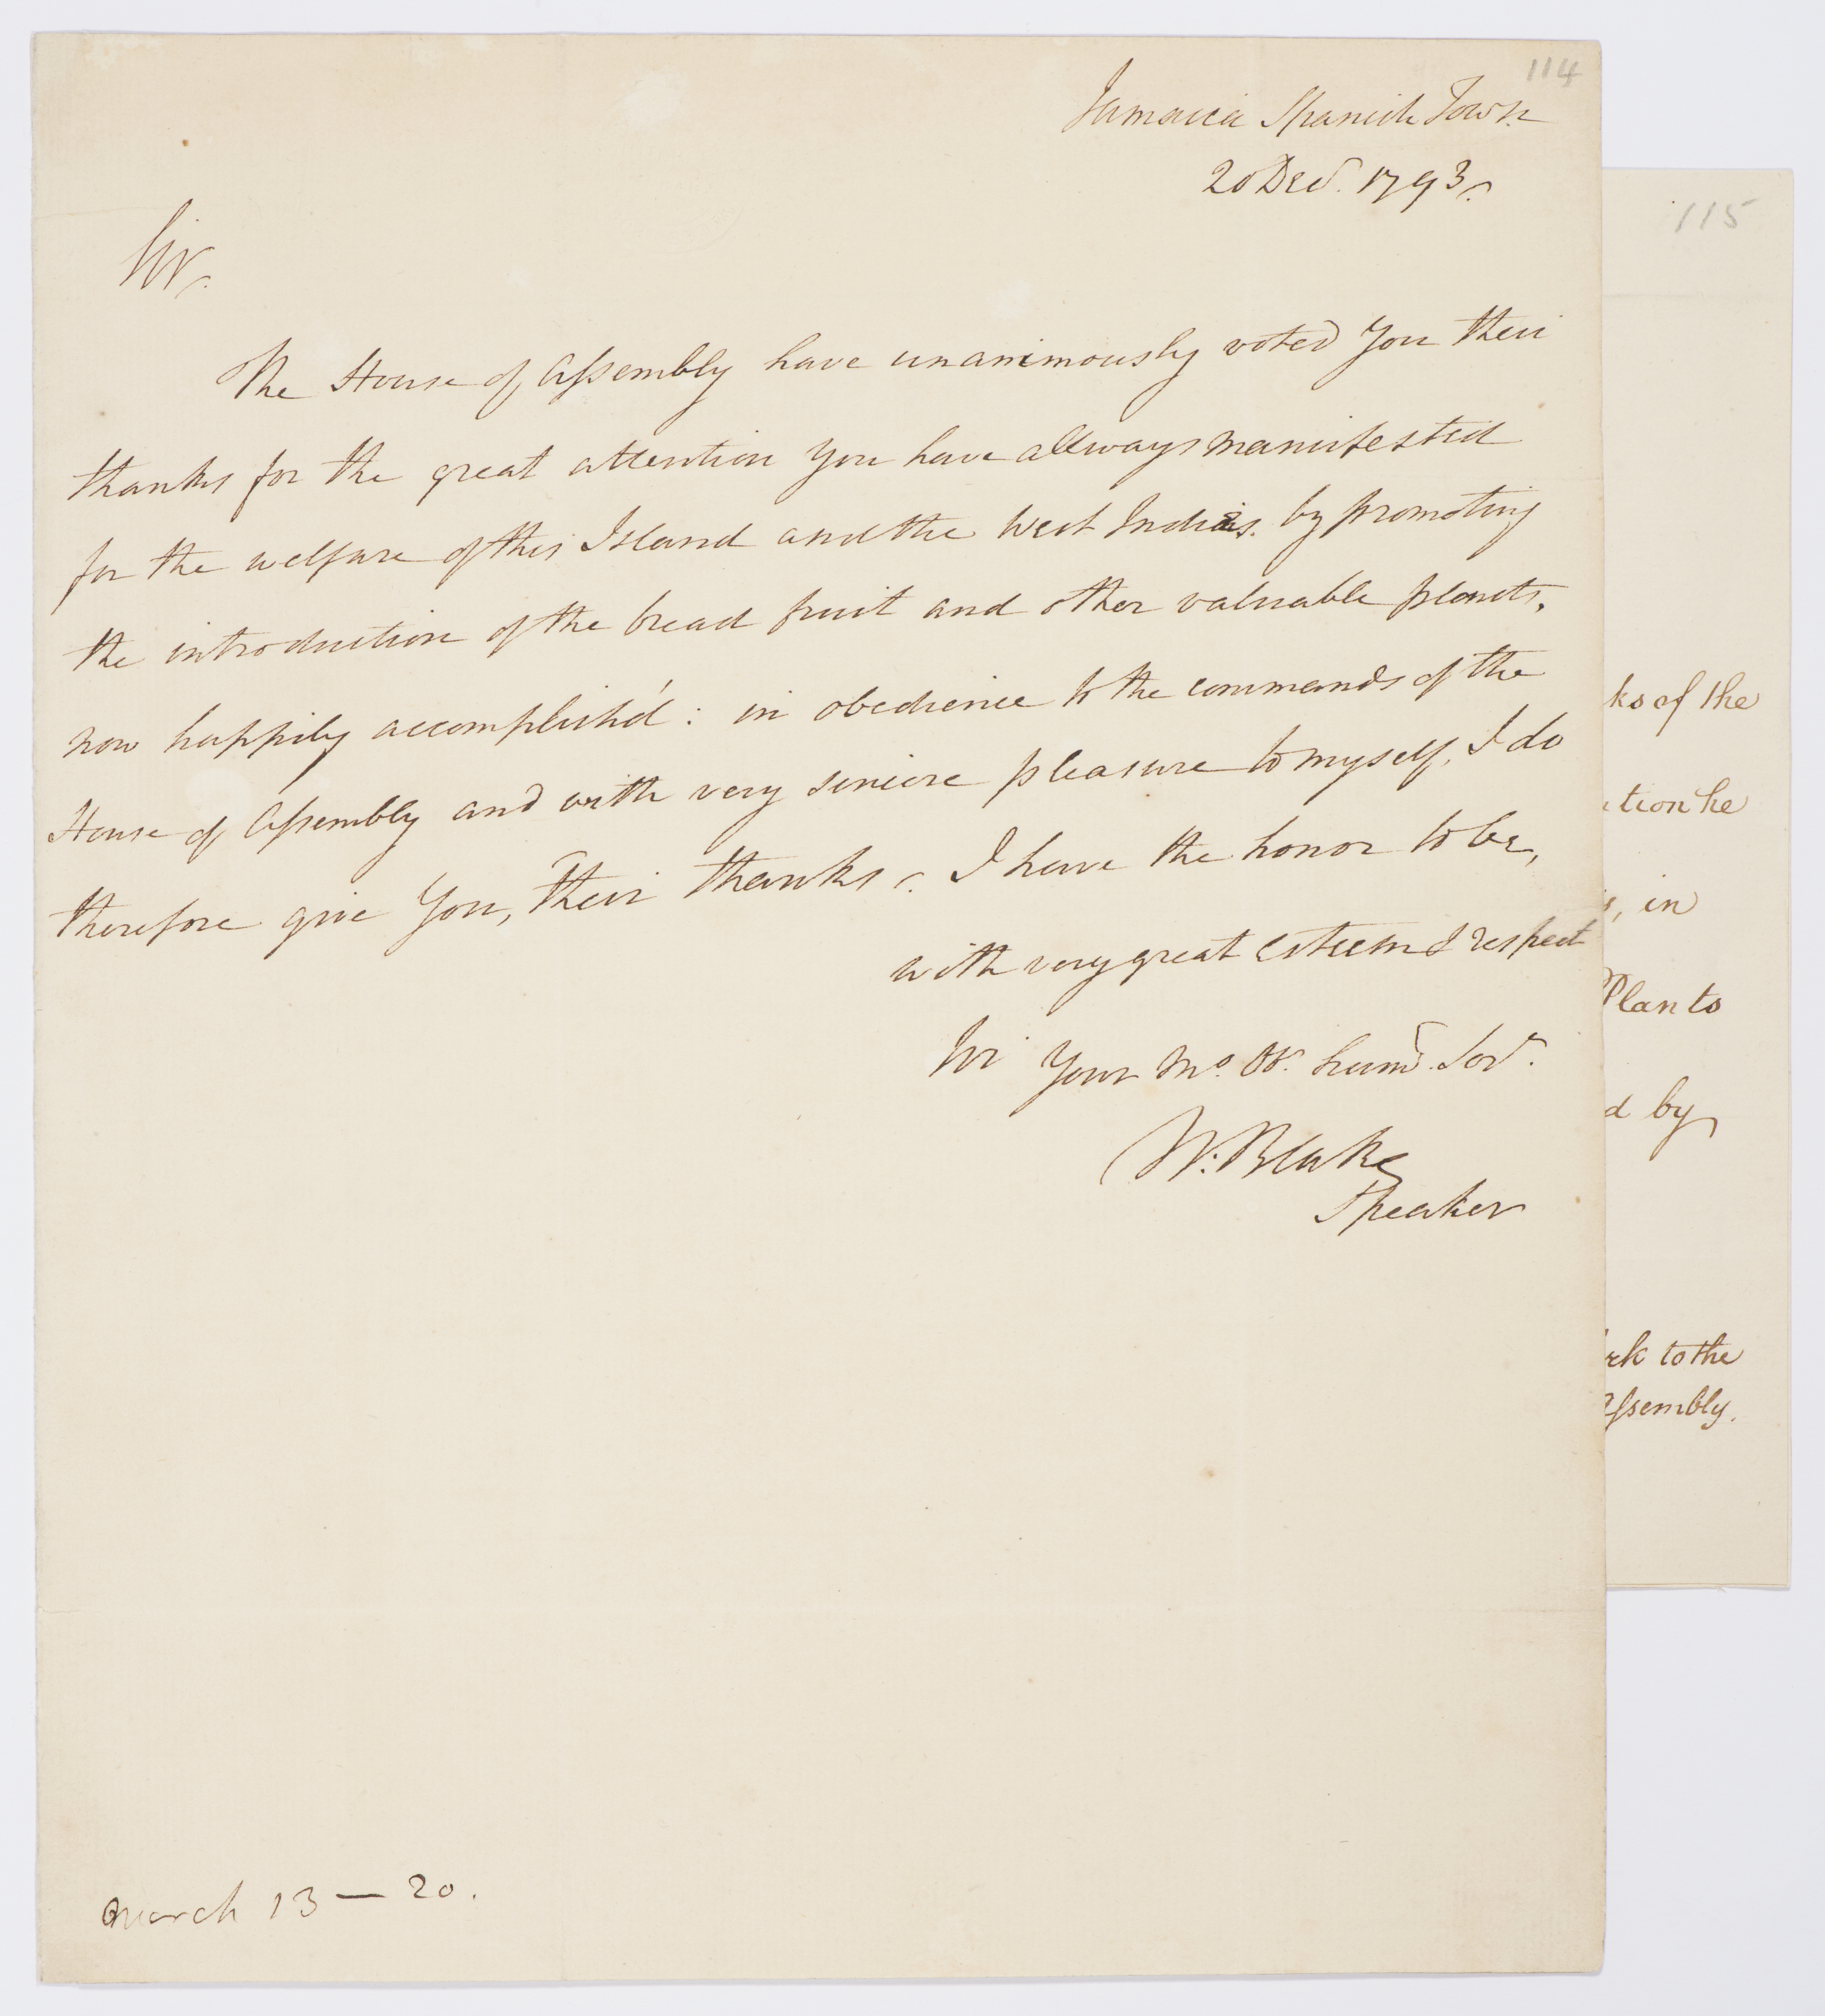 114
Jamaica Spanish Town
20 Decr. 1793.
Sir.
The House of Assembly have unanimously voted You their
thanks for the great attention You have allways manifested
for the welfare of this Island and the West Indies. by promoting
the introduction of the bread fruit and other valuable plants,
now happily accomplish'd: in obedience to the commands of the
House of Assembly and with very sincere pleasure to myself, I do
therefore give You, their thanks. I have the honor to be,
with very great esteem & respect
Sir Your Mo. Ob. hum. Ser.
W. Blake
Speaker
March 13 — 20.
115
ks of the
tion he
, in
Plan to
d by
rk to the
ssembly.